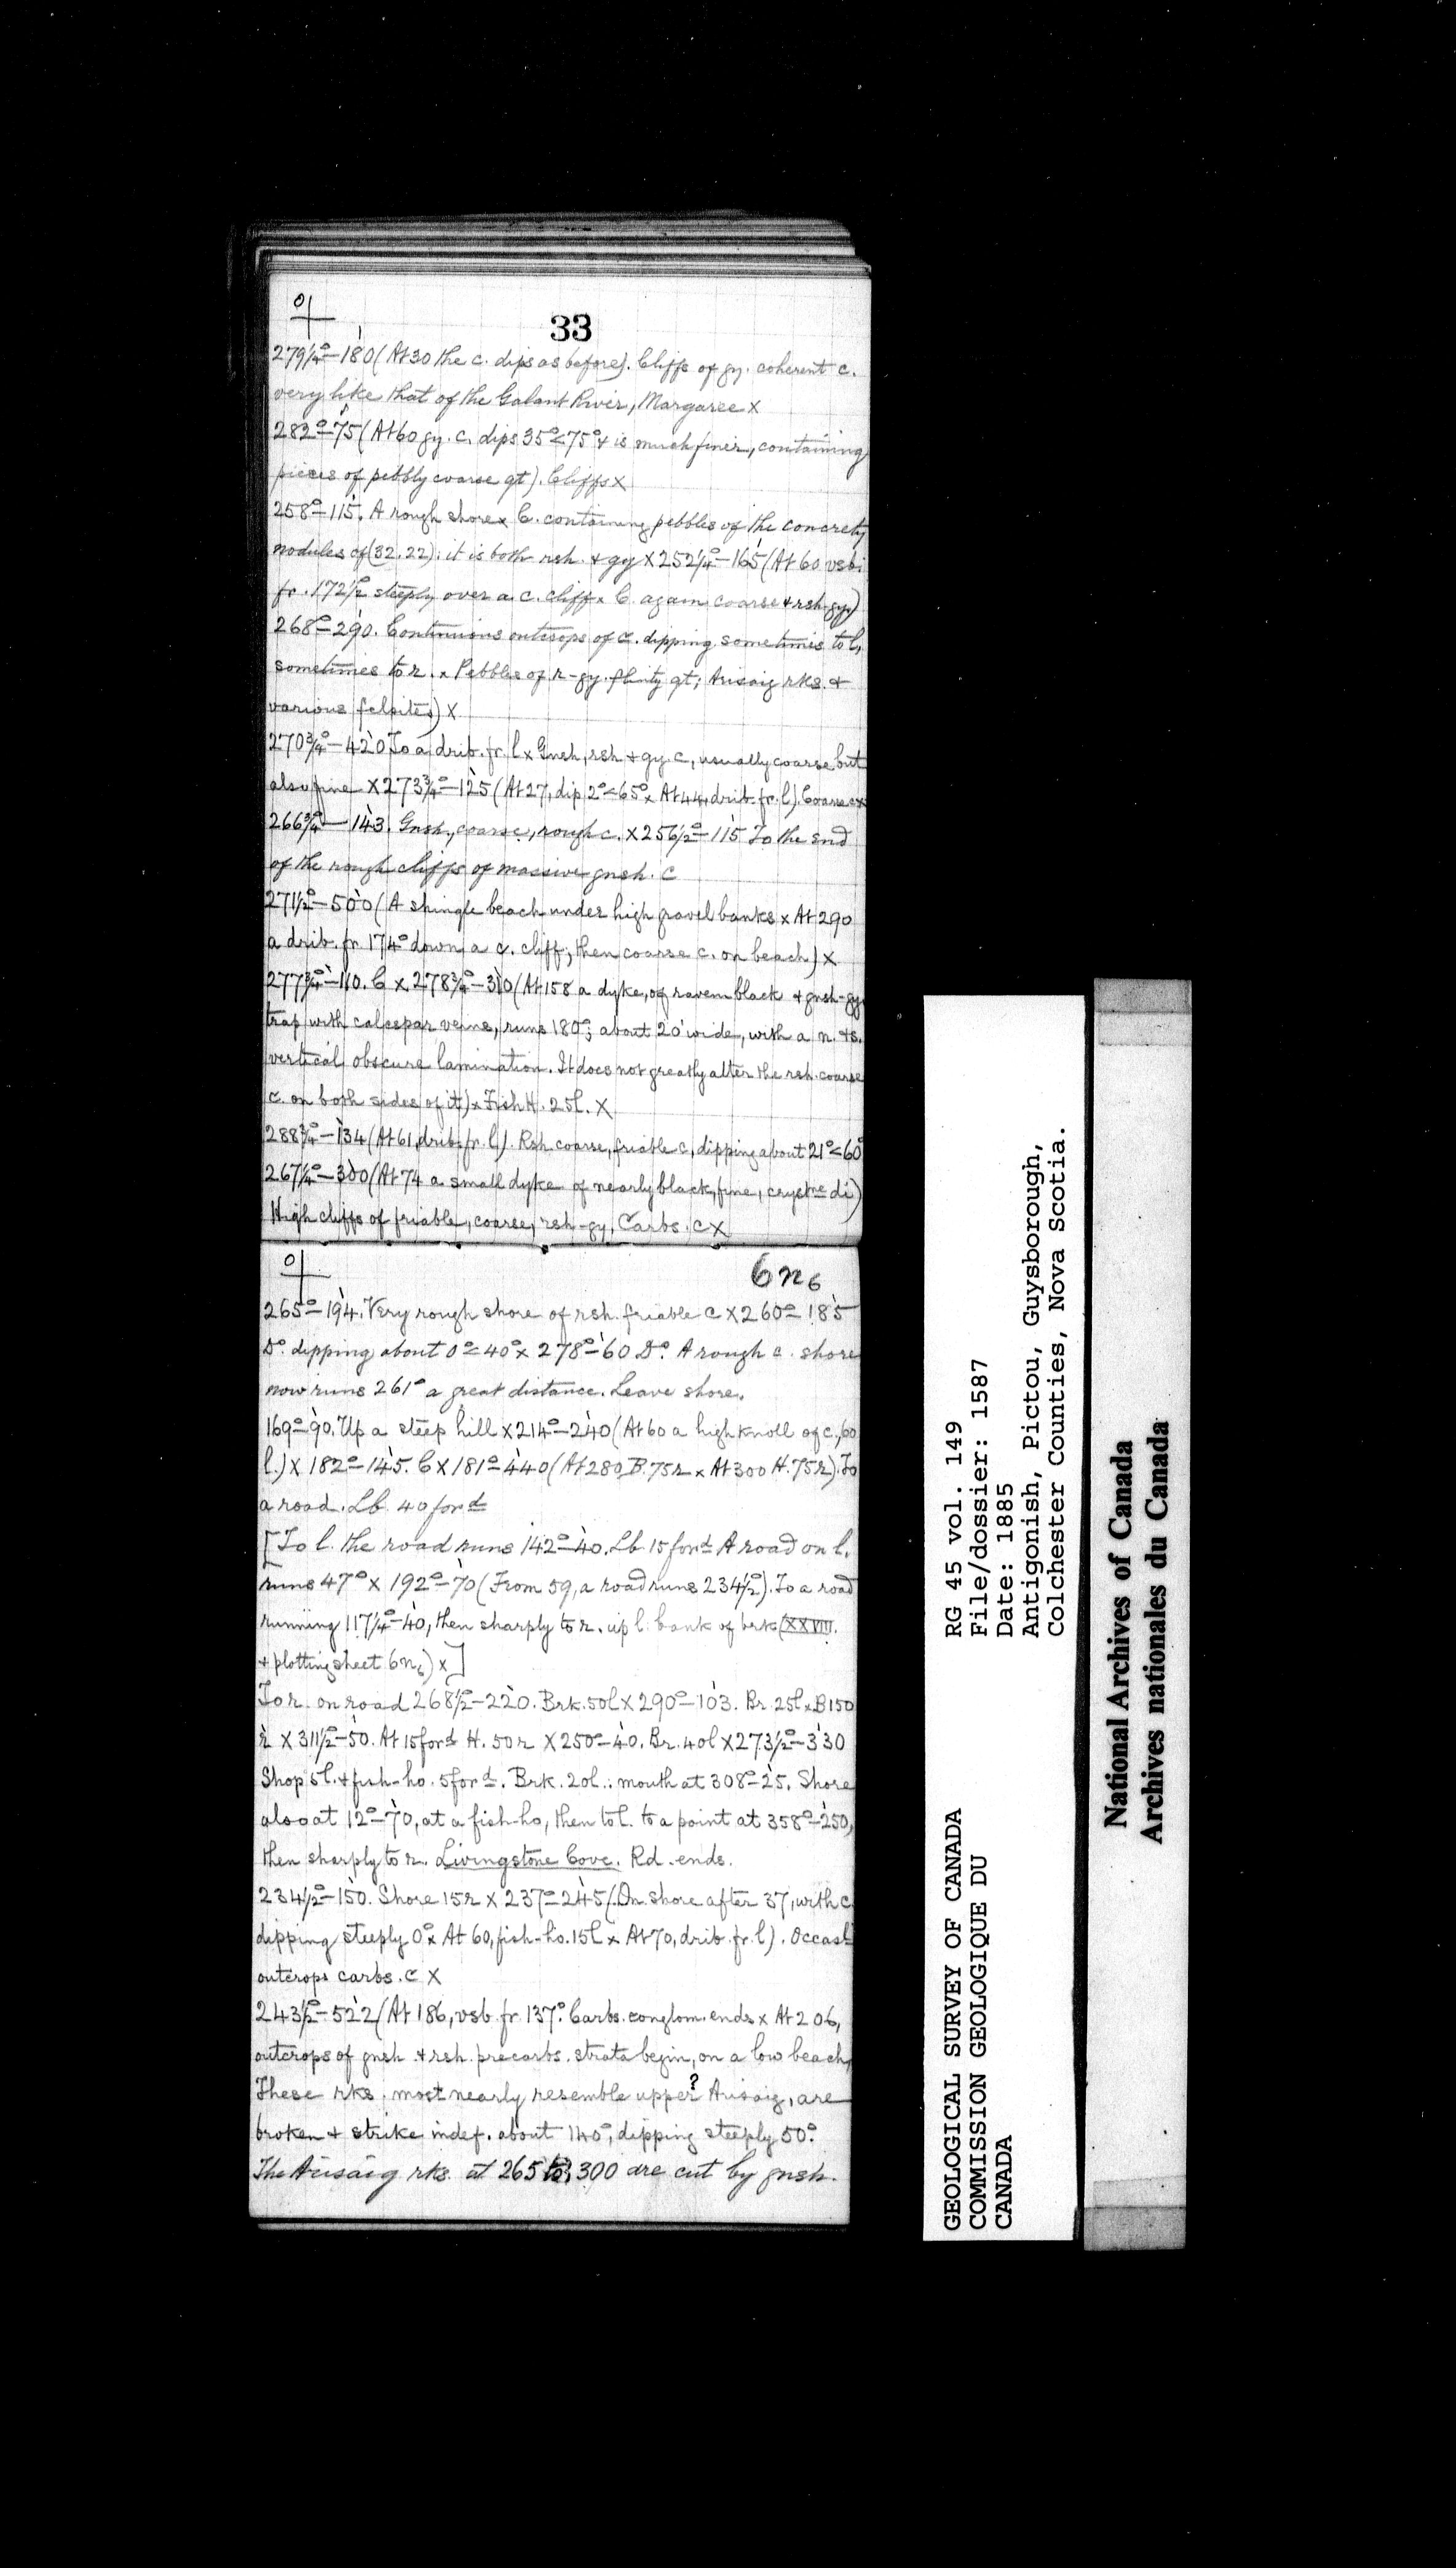 33
279¼°–180 (At 30 the c. dips as before). Cliffs of gy. coherent c.
very like that of the Galant River, Margaree X
282°–75 (At 60 gy. c. dips 35°<75° + is much finer, containing
pieces of pebbly coarse qt). Cliffs X
258°–115. A rough shore x C. containing pebbles of the concrety
nodules of (32.22): it is both rsh. + gy X 252¼°–165 (At 60 vsb
fr. 172½ steeply over a c. cliff x C. again coarse + rsh-gy)
268°–290. Continuous outcrops of c. dipping sometimes to l,
sometimes to r. x Pebbles of r-gy. flinty qt; Arisaig rks. +
various felsites) X
270¾°–420 To a drib. fr. l x Gnsh, rsh + gy. c, usually coarse but
also fine X 273¾°–125 (At 27, dip 2°<65° x At 44, drib. fr. l). Coarse c x
266¾°–143. Gnsh, coarse, rough c. X 256½°–115 To the end
of the rough cliffs of massive gnsh. c
271½°–500 (A shingle beach under high gravel banks x At 290
a drib. fr 174° down a c. cliff; then coarse c. on beach) X
277¾°–110. C X 278¾°–310 (At 158 a dyke, of raven black + gnsh-gy
trap with calcspar veins, runs 180°; about 20' wide, with a n. + s.
vertical obscure lamination. It does not greatly alter the rsh. coarse
c. on both sides of it) x Fish H. 25l. X
288¾°–134 (At 61, drib. fr. l). Rsh coarse, friable c, dipping about 21°<60°
267¼°–300 (At 74 a small dyke of nearly black, fine, crystne di)
High cliffs of friable, coarse, rsh-gy, Carbs. c X
6n6
265°–194. Very rough shore of rsh. friable c X 260°–185
Do. dipping about 0°<40° x 278°–60 Do. A rough c. shore
now runs 261° a great distance. Leave shore.
169°–90. Up a steep hill X 214°–240 (At 60 a high knoll of c, 60
l.) X 182°–145. C X 181°–440 (At 280, B. 75r x At 300 H. 75r). To
a road. Lb. 40 ford
[To l. the road runs 142°–40. Lb 15 ford A road on l.
runs 47° X 192°–70 (From 59, a road runs 234½°). To a road
running 117¼°–40, then sharply to r. up l. bank of brk (XXVIII.
+ plotting sheet 6n6) x]
To r. on road 268½°–220. Brk. 50l X 290°–103. Br. 25l x B 150
r X 311½°–50. At 15 ford H. 50r X 250°–40. Br. 40l X 273½°–330
Shop 5l. + fish-ho. 5 ford. Brk. 20l.: mouth at 308°–25. Shore
also at 12°–70, at a fish-ho, then to l. to a point at 358°–250,
then sharply to r. Livingstone Cove. Rd. ends.
234½°–150. Shore 15r X 237°–245 (On shore after 37, with c.
dipping steeply 0° x At 60, fish-ho. 15l x At 70, drib. fr. l). Occasl
outcrops carbs. c X
243½°–522 (At 186, vsb. fr. 137°. Carbs. conglom. ends x At 206,
outcrops of gnsh. + rsh. precarbs. strata begin, on a low beach.
These rks. most nearly resemble upper? Arisaig, are
broken + strike indef. about 140°, dipping steeply 50°.
The Arisaig rks. at 265 to 300 are cut by gnsh.
GEOLOGICAL SURVEY OF CANADA
COMMISSION GEOLOGIQUE DU
CANADA
RG 45 vol. 149
File/dossier: 1587
Date: 1885
Antigonish, Pictou, Guysborough,
Colchester Counties, Nova Scotia.
National Archives of Canada
Archives nationales du Canada